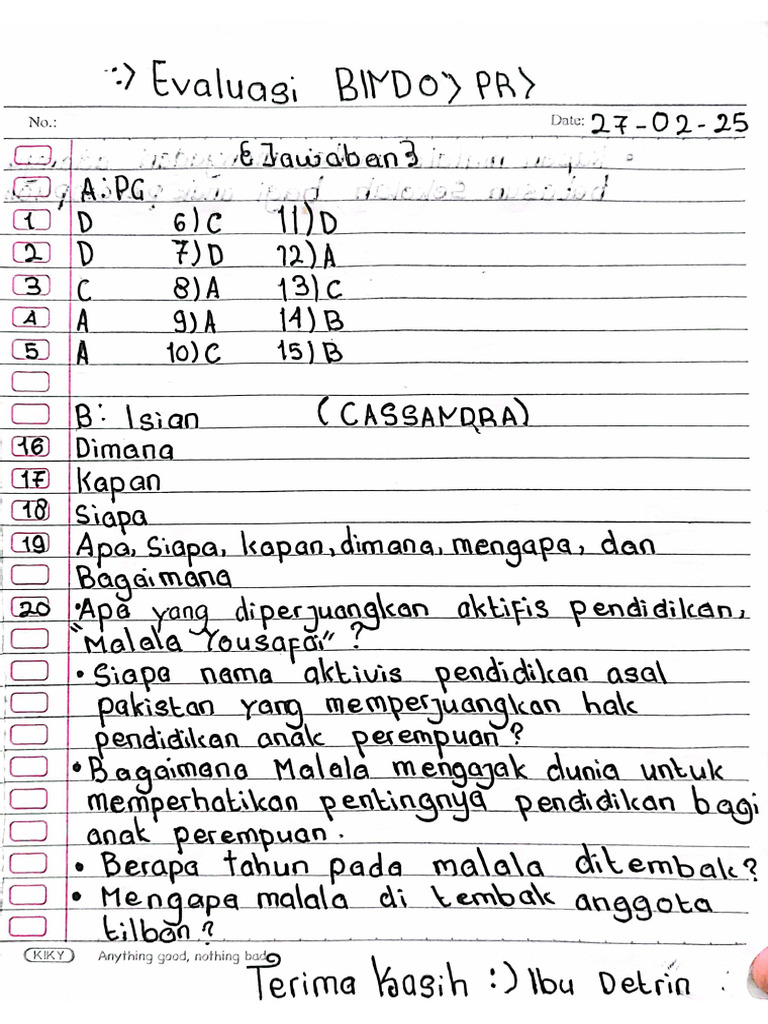 :> Evaluasi BINDO> PR>
No.: Date: 27-02-25
{Jawaban}
A: PG
1 D 6) C 11) D
2 D 7) D 12) A
3 C 8) A 13) C
4 A 9) A 14) B
5 A 10) C 15) B
B: Isian (CASSANDRA)
16 Dimana
17 Kapan
18 Siapa
19 Apa, Siapa, kapan, dimana, mengapa, dan
Bagaimana
20 • Apa yang diperjuangkan aktifis pendidikan,
"Malala Yousafai" ?
• Siapa nama aktivis pendidikan asal
pakistan yang memperjuangkan hak
pendidikan anak perempuan?
• Bagaimana Malala mengajak dunia untuk
memperhatikan pentingnya pendidikan bagi
anak perempuan.
• Berapa tahun pada malala ditembak?
• Mengapa malala di tembak anggota
tilban?
KIKY Anything good, nothing bad
Terima kasih :) Ibu Detrin